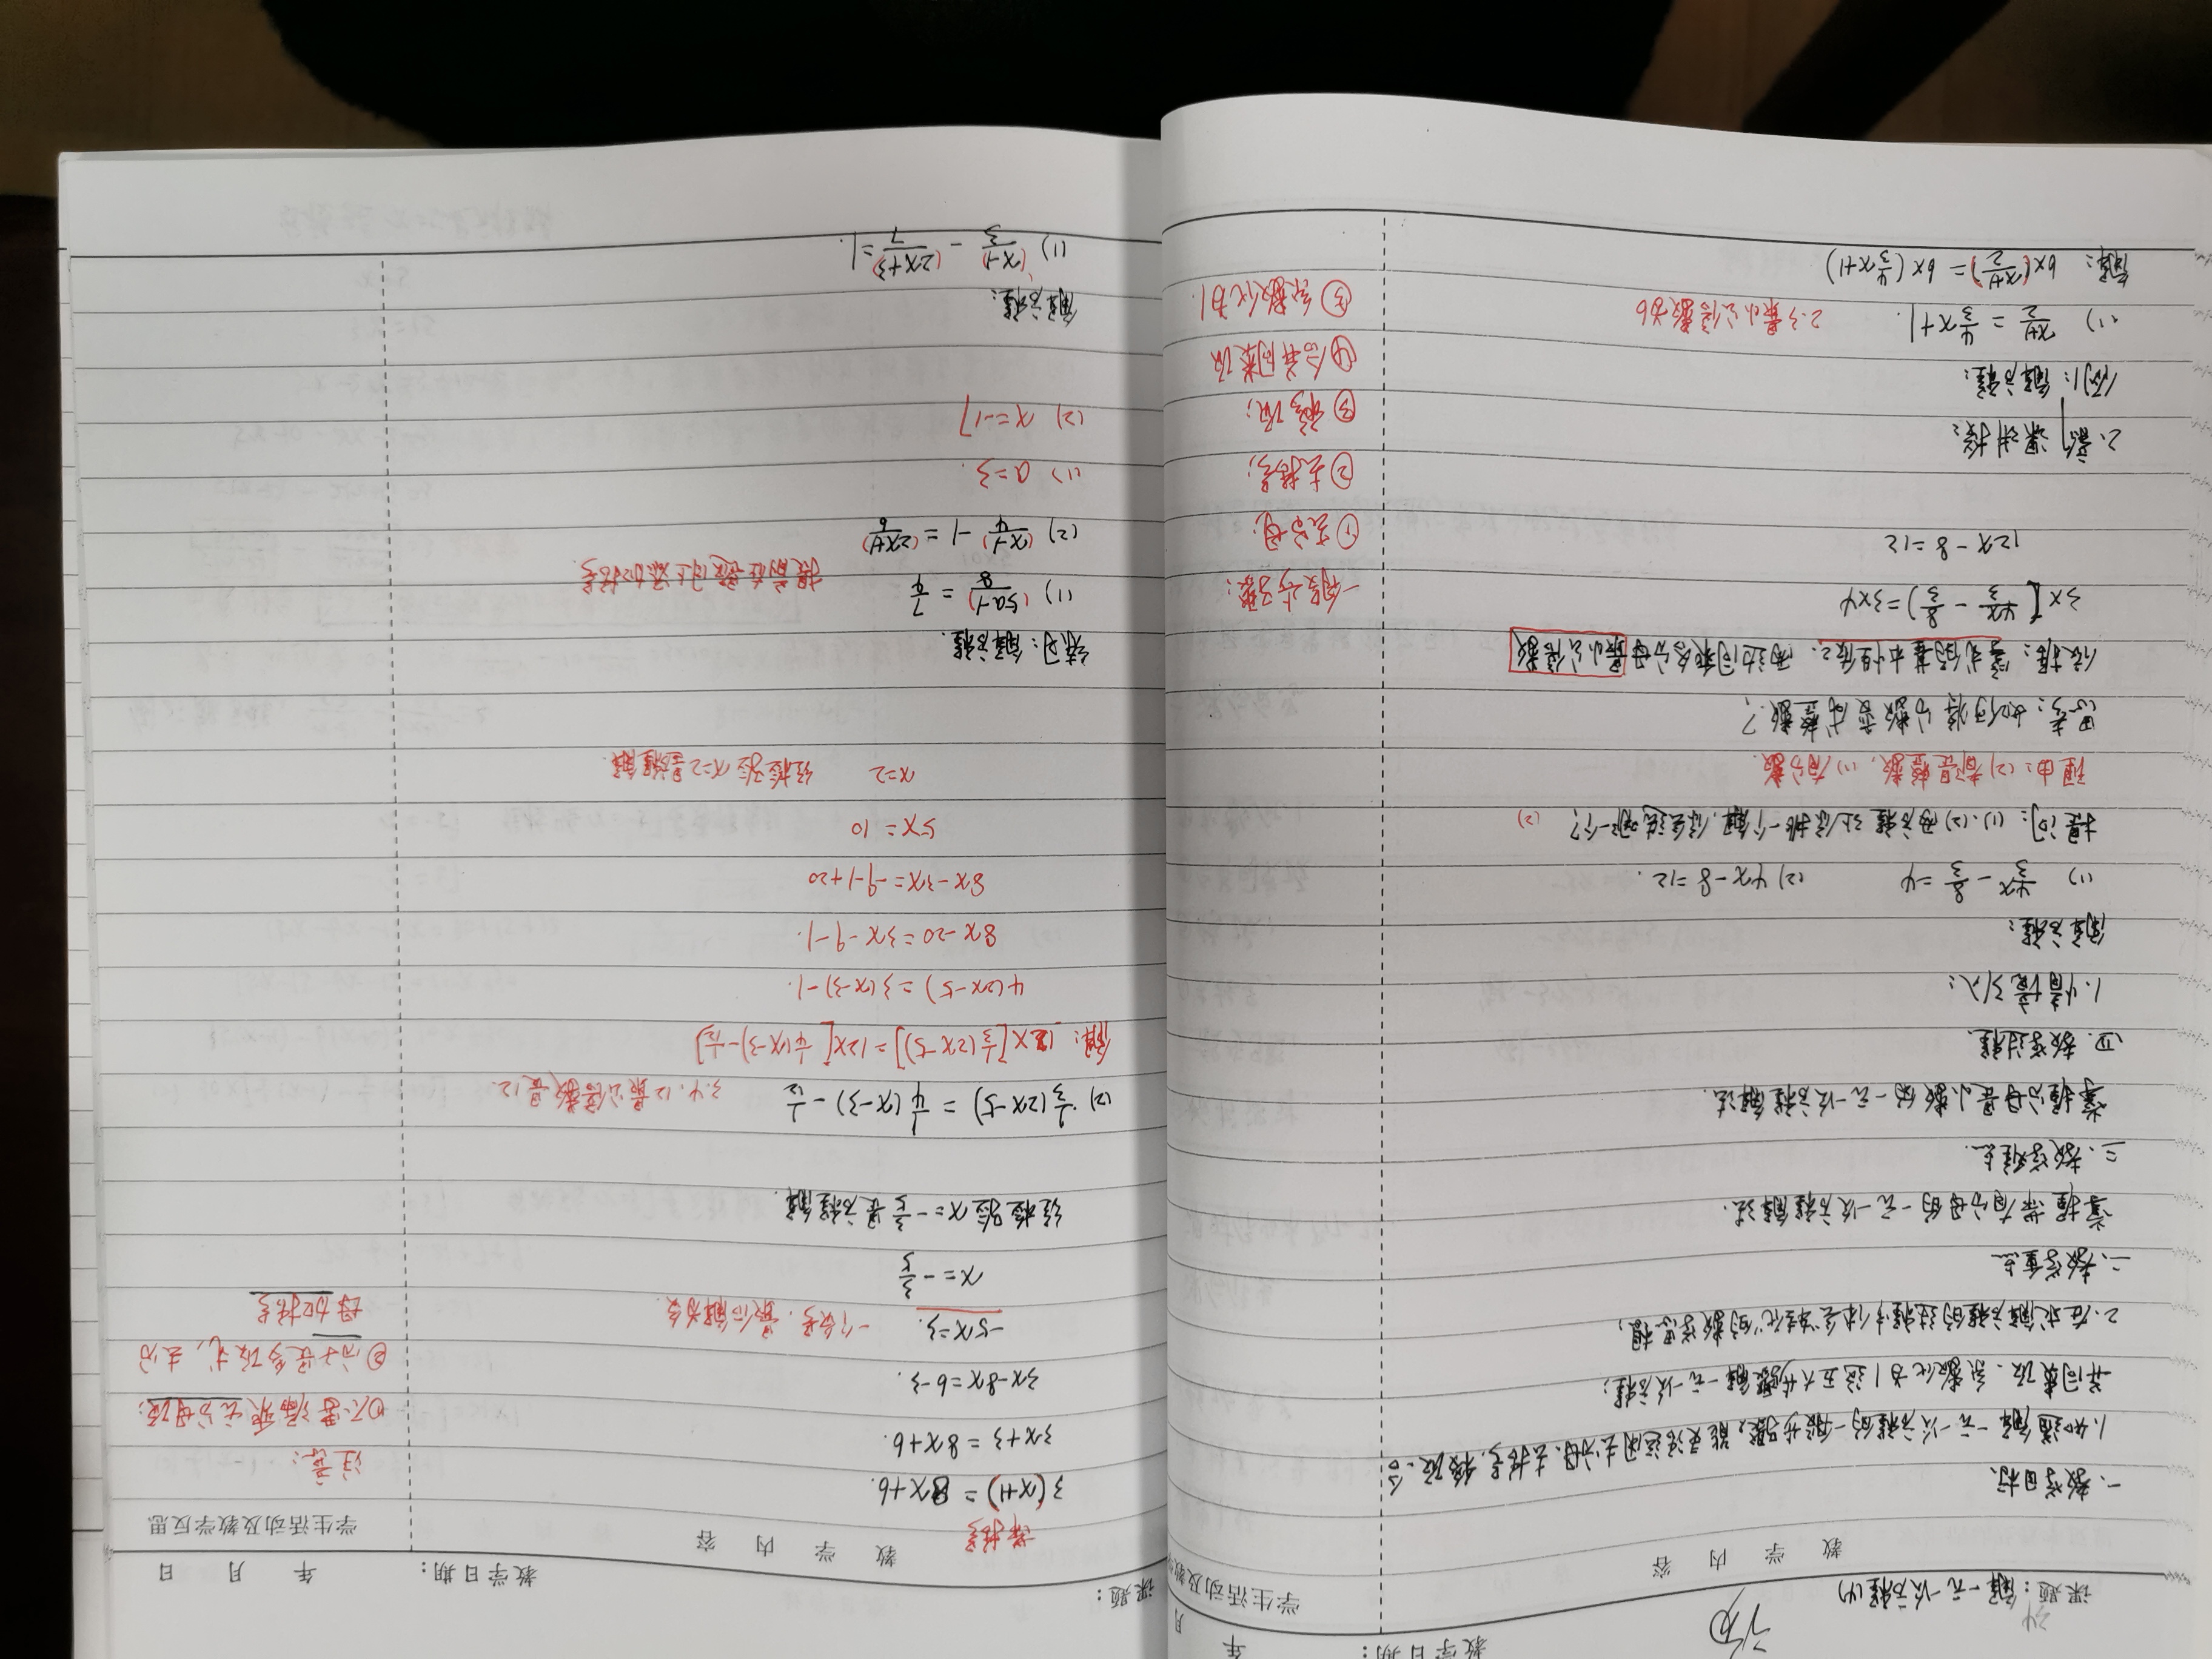 课题：解一元一次方程(4)
教学日期：
年
月
教 学 内 容
学生活动及教学
一、教学目标
1.知道解一元一次方程的一般步骤，能灵活运用去分母、去括号、移项、合
并同类项、系数化为1这五大步骤解一元一次方程；
2.在求解方程的过程中体会"转化"的数学思想；
二、教学重点
掌握带有分母的一元一次方程解法.
三、教学难点
掌握分母是小数的一元一次方程解法.
四、教学过程
1.情境引入：
解方程：
(1) 4x/3 - 8/3 = 4 (2) 4x-8=12.
提问：(1)、(2)两方程让你挑一个解，你会选哪一个？ (2)
理由：(2)都是整数，(1)有分数.
思考：如何将分数变成整数？
依据：等式的基本性质2. 两边同乘各分母最小公倍数
3×[4x/3 - 8/3)=3×4
12x-8=12
2.新课讲授：
例1：解方程：
(1) x+1/2 = 4/3 x+1. 2.3最小公倍数为6
解： 6×(x+1/2) = 6×(4/3 x+1)
一般步骤：
①去分母；
②去括号；
③移项；
④合并同类项
⑤系数化为1.
课题：
教学日期：
年 月 日
教 学 内 容
学生活动及教学反思
带括号
3(x+1) = 8x+6.
3x+3 = 8x+6.
3x-8x=6-3.
-5x=3. 一个负号，最后解为负
x=-3/5
经检验x=-3/5是方程解
注意：
①不要漏乘无分母项；
②分子是多项式，去分
母加括号
(2) 1/3(2x-5) = 1/4(x-3) - 1/12 3.4.12最小公倍数是12.
解：12×[1/3(2x-5)]=12×[1/4(x-3)-1/12]
4(2x-5)=3(x-3)-1.
8x-20=3x-9-1.
8x-3x=-9-1+20
5x=10
x=2 经检验x=2是方程解.
练习：解方程.
(1) (5a-1)/8 = 7/4 提前在分子上添加括号.
(2) (x-1)/4 -1 = (2x+1)/6
(1) a=3.
(2) x=-17
解方程：
(1) (x-1)/3 - (2x+3)/7 =1.